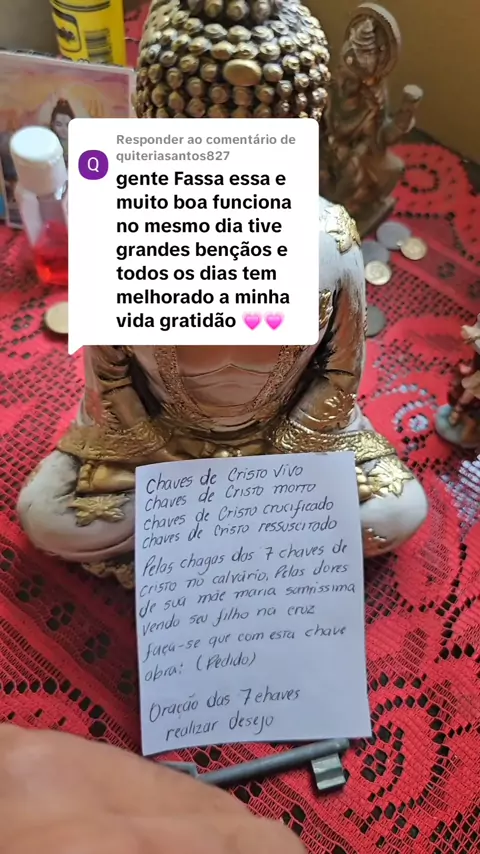 Responder ao comentário de
quiteriasantos827
Q
gente Fassa essa e
muito boa funciona
no mesmo dia tive
grandes bençãos e
todos os dias tem
melhorado a minha
vida gratidão 💗💗
Chaves de Cristo vivo
chaves de Cristo morto
chaves de Cristo crucificado
chaves de Cristo ressuscitado
Pelas chagas das 7 chaves de
Cristo no calvário, Pelas dores
de sua mãe maria santíssima
vendo seu filho na cruz
faça-se que com esta chave
obra: (Pedido)
Oração das 7 chaves
realizar desejo